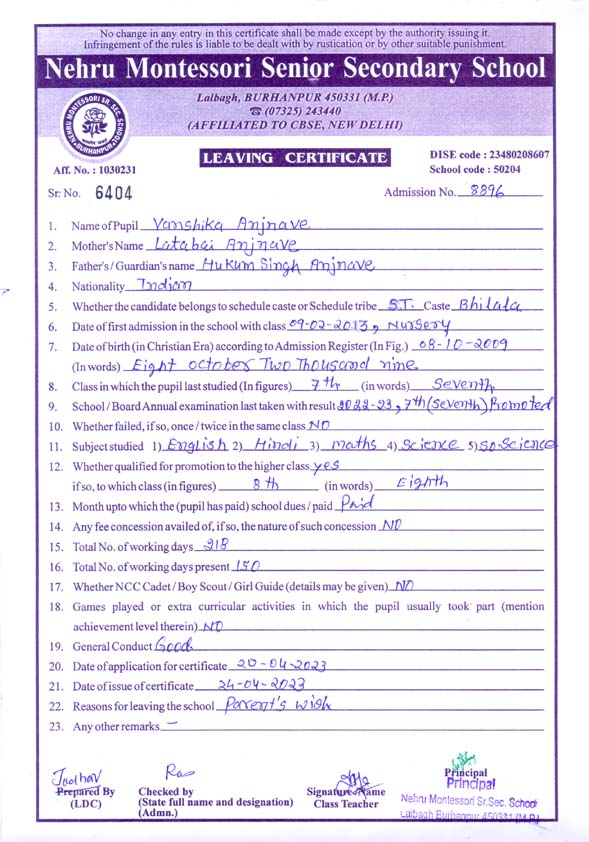 No change in any entry in this certificate shall be made except by the authority issuing it.
Infringement of the rules is liable to be dealt with by rustication or by other suitable punishment.
Nehru Montessori Senior Secondary School
Lalbagh, BURHANPUR 450331 (M.P.)
☎ (07325) 243440
(AFFILIATED TO CBSE, NEW DELHI)
NEHRU MONTESSORI SR. SEC. SCHOOL
BURHANPUR
LEAVING CERTIFICATE
DISE code : 23480208607
Aff. No. : 1030231 School code : 50204
Sr. No. 6404 Admission No. 8896
1. Name of Pupil Vanshika Anjnave
2. Mother's Name Latabai Anjnave
3. Father's / Guardian's name Hukum Singh Anjnave
4. Nationality Indian
5. Whether the candidate belongs to schedule caste or Schedule tribe S.T. Caste Bhilala
6. Date of first admission in the school with class 09-02-2013, Nursery
7. Date of birth (in Christian Era) according to Admission Register (In Fig.) 08-10-2009
(In words) Eight october Two Thousand nine
8. Class in which the pupil last studied (In figures) 7th (in words) Seventh
9. School / Board Annual examination last taken with result 2022-23, 7th (Seventh) Promoted
10. Whether failed, if so, once / twice in the same class NO
11. Subject studied 1) English 2) Hindi 3) maths 4) Science 5) SO.Science
12. Whether qualified for promotion to the higher class yes
if so, to which class (in figures) 8th (in words) Eighth
13. Month upto which the (pupil has paid) school dues / paid Paid
14. Any fee concession availed of, if so, the nature of such concession NO
15. Total No. of working days 218
16. Total No. of working days present 150
17. Whether NCC Cadet / Boy Scout / Girl Guide (details may be given) NO
18. Games played or extra curricular activities in which the pupil usually took part (mention
achievement level therein) NO
19. General Conduct Good
20. Date of application for certificate 20-04-2023
21. Date of issue of certificate 24-04-2023
22. Reasons for leaving the school Parent's wish
23. Any other remarks —
Jadhav Rao
Prepared By Checked by Signature Name Principal
(LDC) (State full name and designation) Class Teacher Principal
(Admn.) Nehru Montessori Sr.Sec. School
Lalbagh Burhanpur 450331 (M.P.)